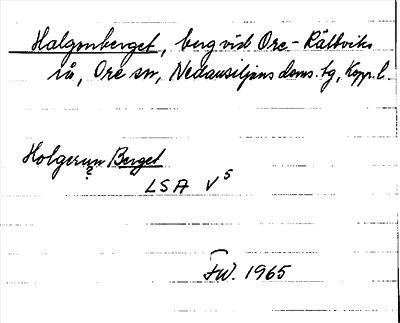 Halgonberget, berg vid Ore-Rättviks
rå, Ore sn, Nedansiljans doms.tg, Kopp.l.
Holgerun Berget
?
LSA V5
FW. 1965